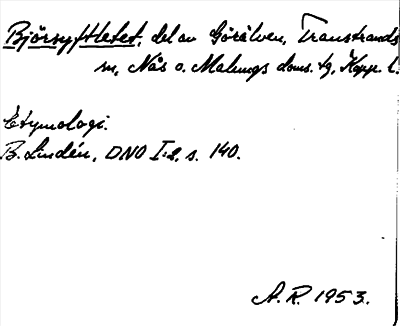 Björnyftletet, del av Görälven, Transtrands
sn, Nås o. Malungs doms. tg, Kopp. l.
Etymologi.
B. Lindén, DNO I:2. s. 140.
A.R. 1953.